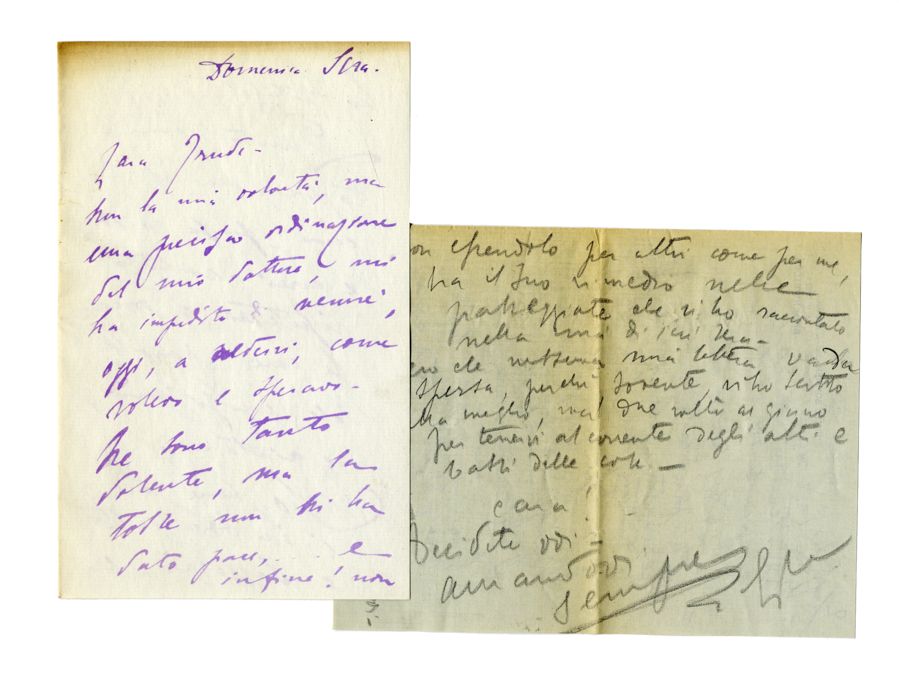 Domenica Sera.
Cara
Non la mia volontà, ma
una preciso ordinazione
del mio dottore, mi
ha impedito di venire,
oggi, a vedervi, come
volevo e speravo.
Ne sono tanto
dolente, ma la
tosse non mi ha
dato pace, e
infine! non
per altri come per me,
ha il suo rimedio nelle
passeggiate che vi ho raccontato
nella mia di ieri sera
che nessuna mia lettera vada
spersa, perché sovente, vi ho scritto
meglio, due volte al giorno
per tenervi al corrente degli alti e
bassi delle cose —
cara!
Decidete voi —
amandovi
sempre